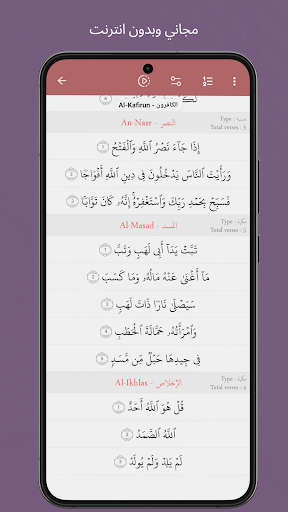 مجاني وبدون انترنت
Al-Kafirun - الكافرون
An-Nasr - النصر
Type : مدنية
Total verses : 3
إِذَا جَآءَ نَصْرُ ٱللَّهِ وَٱلْفَتْحُ ١
وَرَأَيْتَ ٱلنَّاسَ يَدْخُلُونَ فِى دِينِ ٱللَّهِ أَفْوَاجًا ٢
فَسَبِّحْ بِحَمْدِ رَبِّكَ وَٱسْتَغْفِرْهُ إِنَّهُۥ كَانَ تَوَّابًۢا ٣
Al-Masad - المسد
Type : مكية
Total verses : 5
تَبَّتْ يَدَآ أَبِى لَهَبٍ وَتَبَّ ١
مَآ أَغْنَىٰ عَنْهُ مَالُهُۥ وَمَا كَسَبَ ٢
سَيَصْلَىٰ نَارًا ذَاتَ لَهَبٍ ٣
وَٱمْرَأَتُهُۥ حَمَّالَةَ ٱلْحَطَبِ ٤
فِى جِيدِهَا حَبْلٌ مِّن مَّسَدٍۭ ٥
Al-Ikhlas - الإخلاص
Type : مكية
Total verses : 4
قُلْ هُوَ ٱللَّهُ أَحَدٌ ١
ٱللَّهُ ٱلصَّمَدُ ٢
لَمْ يَلِدْ وَلَمْ يُولَدْ ٣